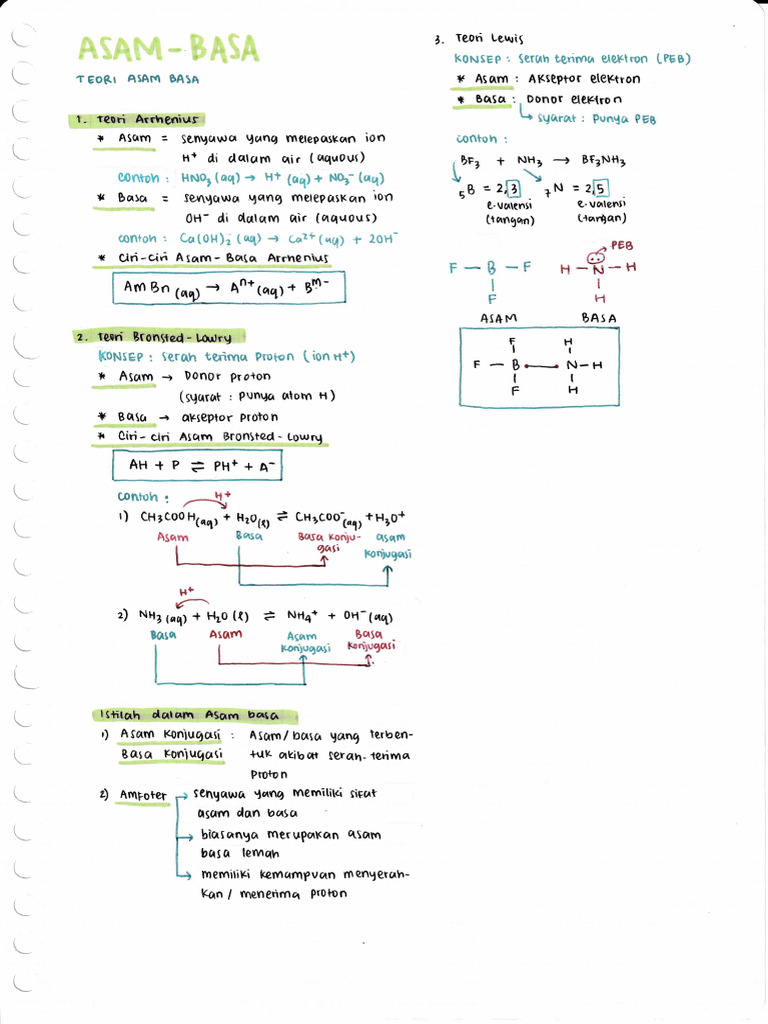 ASAM-BASA
TEORI ASAM BASA
1. Teori Arrhenius
* Asam = senyawa yang melepaskan ion
H⁺ di dalam air (aquous)
contoh : HNO₃ (aq) → H⁺ (aq) + NO₃⁻ (aq)
* Basa = senyawa yang melepaskan ion
OH⁻ di dalam air (aquous)
contoh : Ca(OH)₂ (aq) → Ca²⁺ (aq) + 2OH⁻
* Ciri-ciri Asam-Basa Arrhenius
AmBn (aq) → Aⁿ⁺ (aq) + Bᵐ⁻
2. Teori Bronsted-Lowry
KONSEP : serah terima Proton (ion H⁺)
* Asam → Donor proton
(syarat : punya atom H)
* Basa → akseptor proton
* Ciri-ciri Asam Bronsted-Lowry
AH + P ⇌ PH⁺ + A⁻
contoh :
H⁺
1) CH₃COOH(aq) + H₂O(l) ⇌ CH₃COO⁻(aq) + H₃O⁺
Asam Basa Basa konju- asam
gasi konjugasi
H⁺
2) NH₃ (aq) + H₂O (l) ⇌ NH₄⁺ + OH⁻ (aq)
Basa Asam Asam Basa
konjugasi konjugasi
Istilah dalam Asam basa
1) Asam Konjugasi : Asam/basa yang terben-
Basa Konjugasi tuk akibat serah-terima
Proton
2) Amfoter → senyawa yang memiliki sifat
asam dan basa
→ biasanya merupakan asam
basa lemah
→ memiliki kemampuan menyerah-
kan / menerima proton
3. Teori Lewis
KONSEP : Serah terima elektron (PEB)
* Asam : Akseptor elektron
* Basa : Donor elektron
→ syarat : punya PEB
contoh :
BF₃ + NH₃ → BF₃NH₃
₅B = 2,3 ₇N = 2,5
e-valensi e-valensi
(tangan) (tangan)
PEB
F — B — F H — N — H
F H
ASAM BASA
F H
F — B — N — H
F H